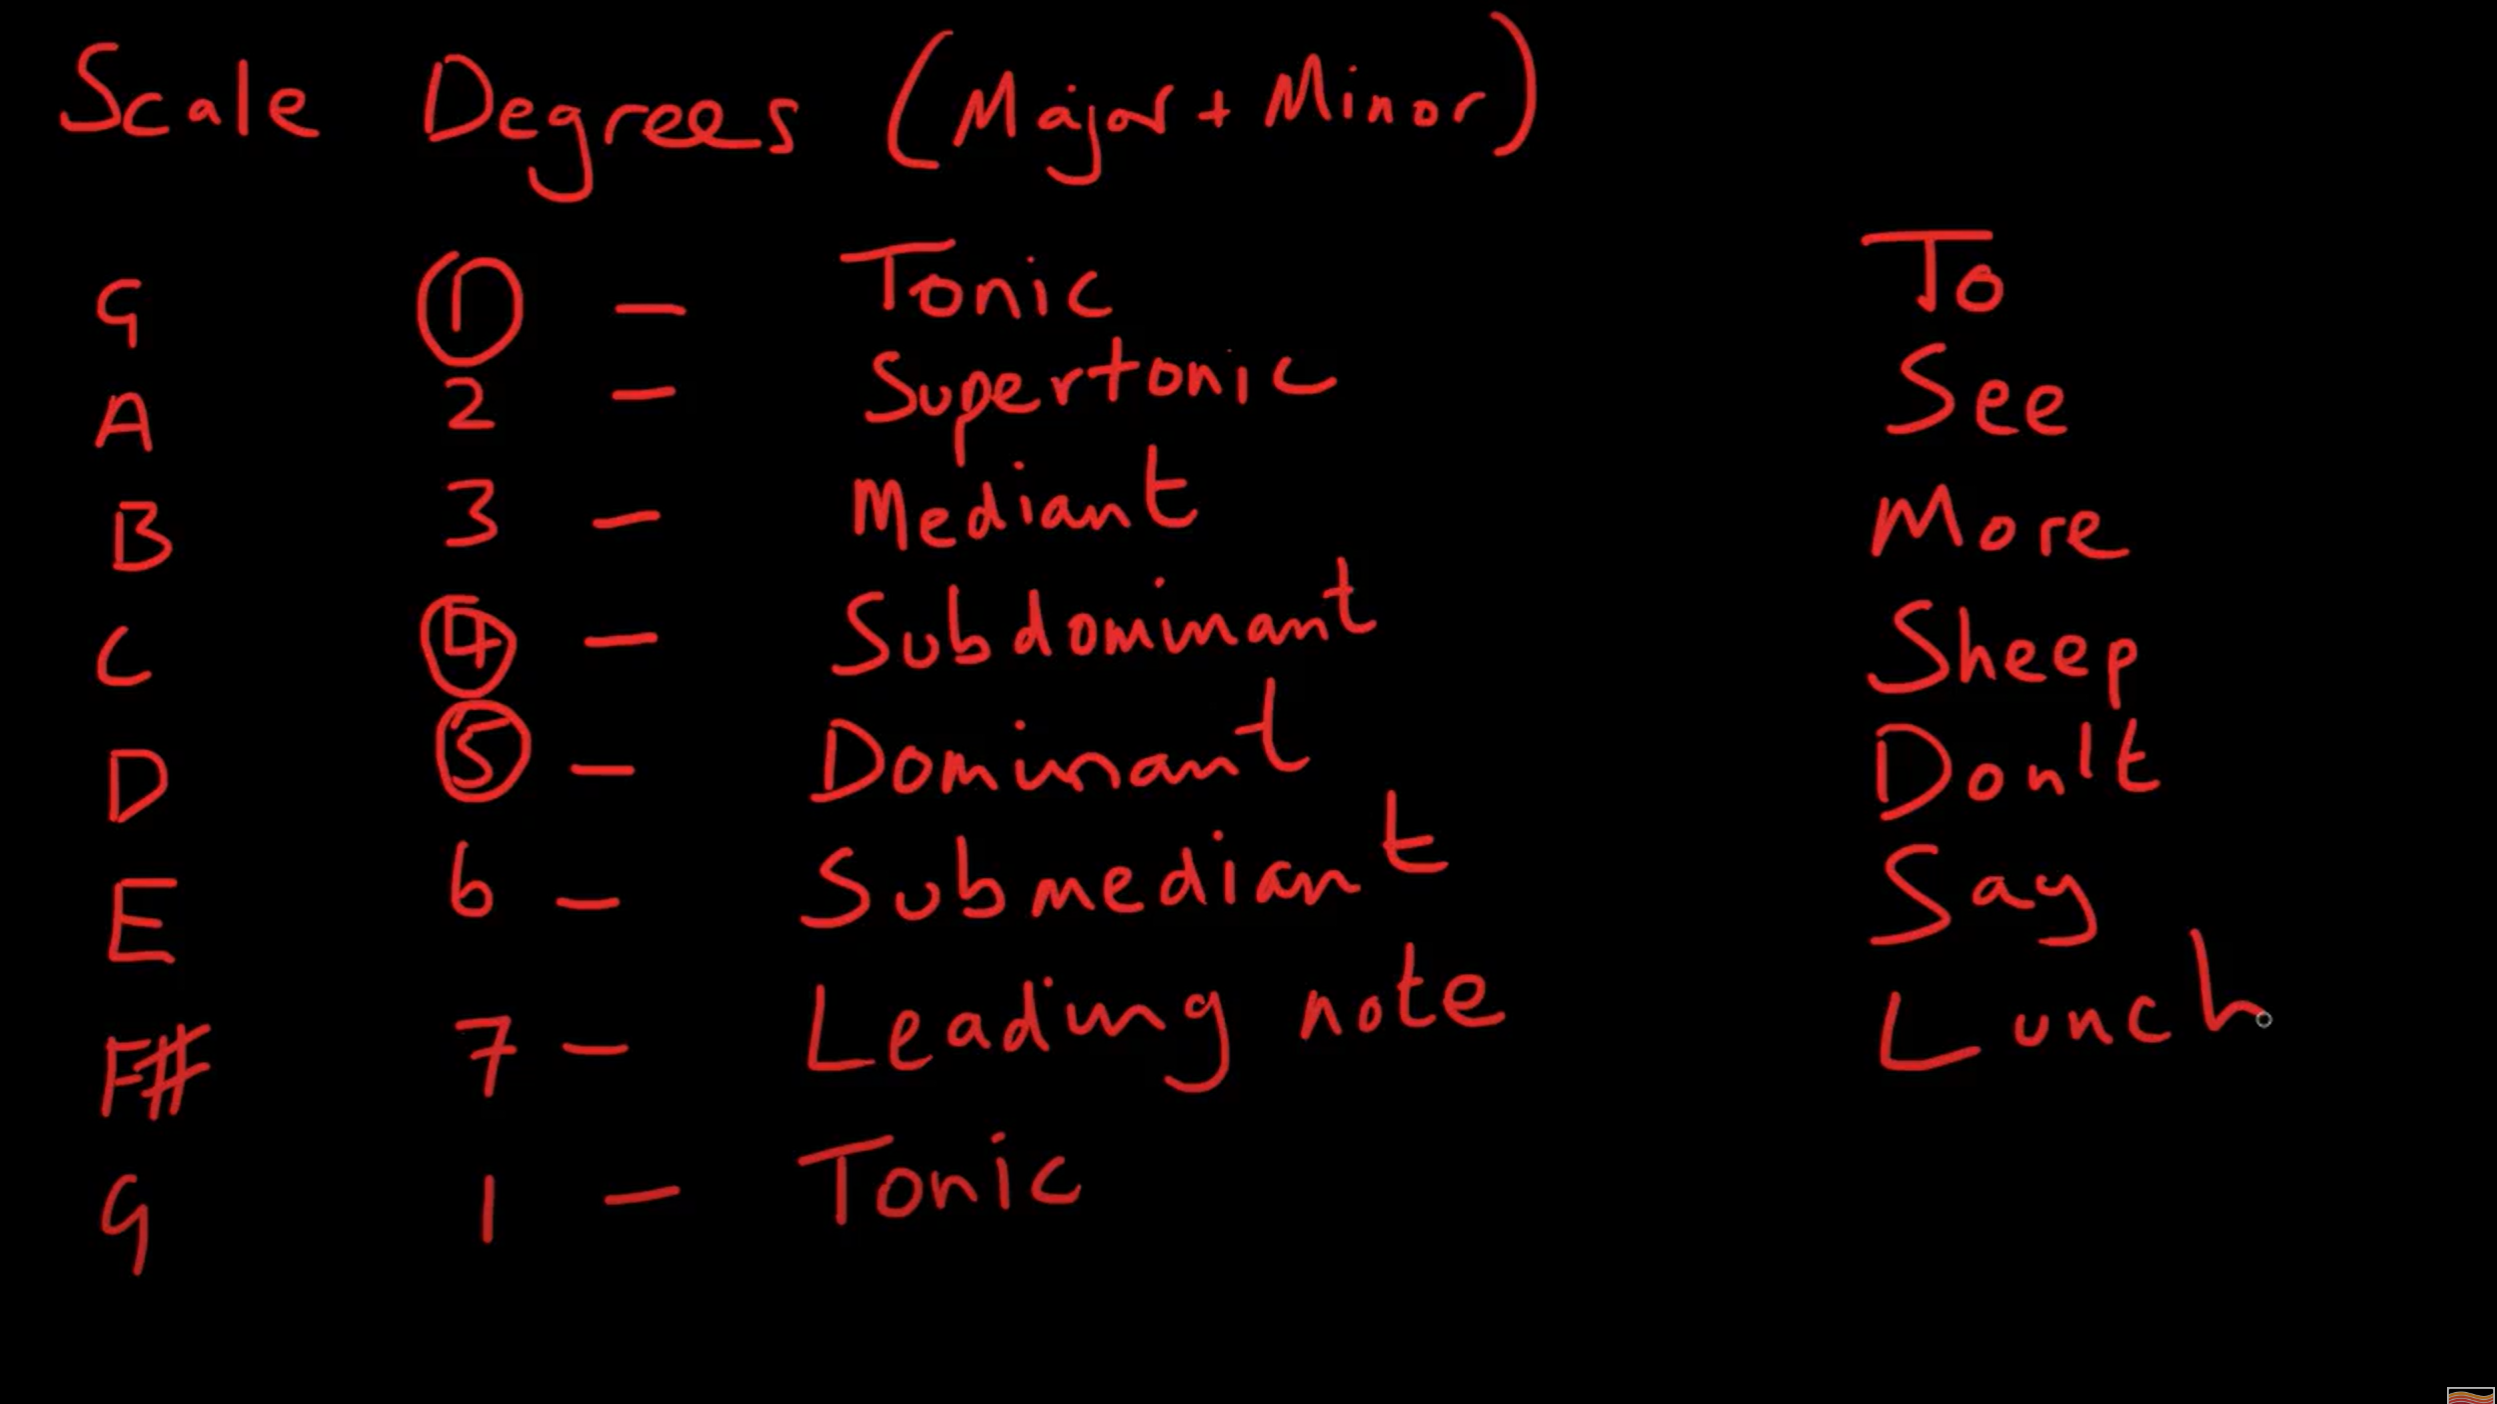 Scale Degrees (Major + Minor)
G 1 – Tonic To
A 2 – Supertonic See
B 3 – Mediant More
C 4 – Subdominant Sheep
D 5 – Dominant Don't
E 6 – Submediant Say
F# 7 – Leading note Lunch
G 1 – Tonic